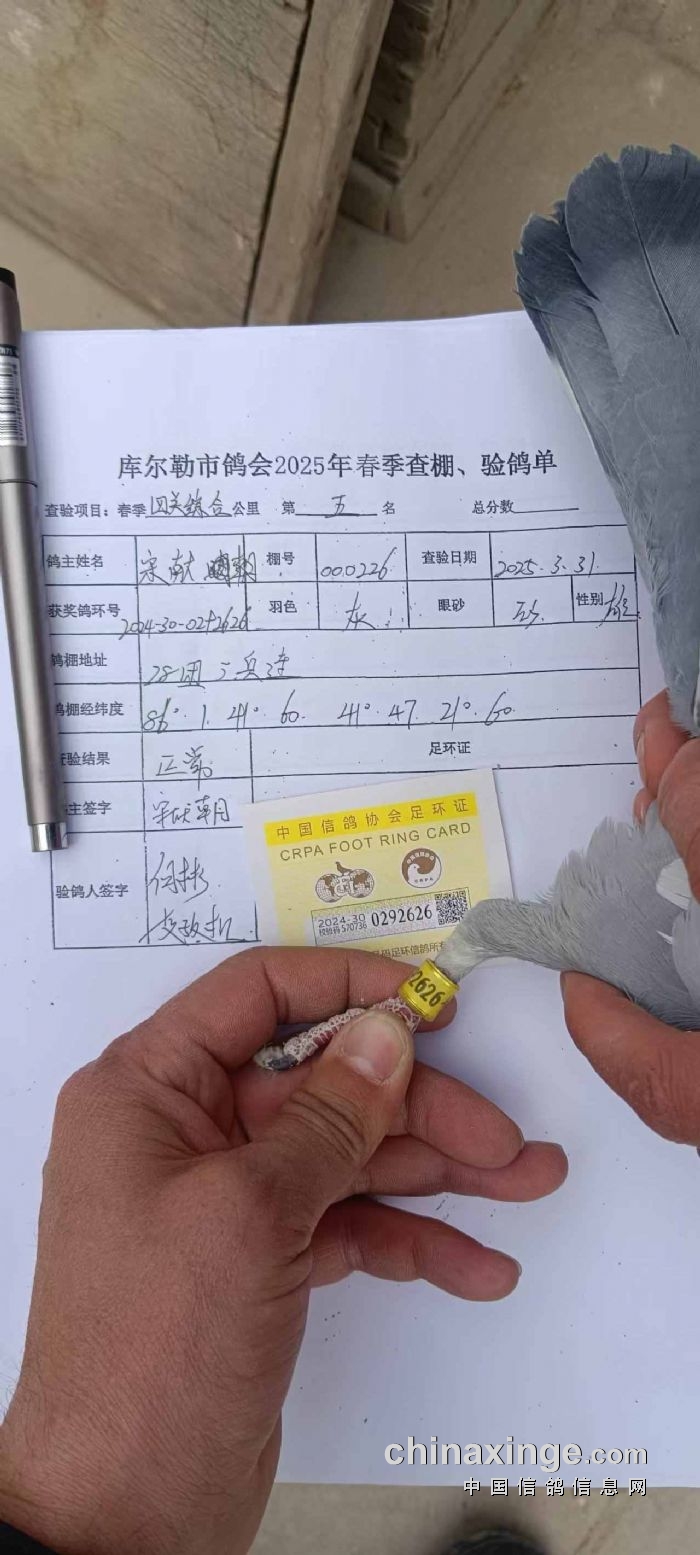 库尔勒市鸽会2025年春季查棚、验鸽单
查验项目：春季四关综合公里 第五名 总分数
鸽主姓名 宋献朝 棚号 000226 查验日期 2025.3.31
获奖鸽环号 2024-30-0292626 羽色 灰 眼砂 砂 性别 雄
鸽棚地址 28团
鸽棚经纬度 86° 1. 41° 60. 41° 47. 21° 60
查验结果 正常 足环证
鸽主签字 宋献朝
验鸽人签字
中国信鸽协会足环证
CRPA FOOT RING CARD
2024-30 0292626
校验码 S70736
足环信鸽所有
2626
chinaxinge.com
中国信鸽信息网